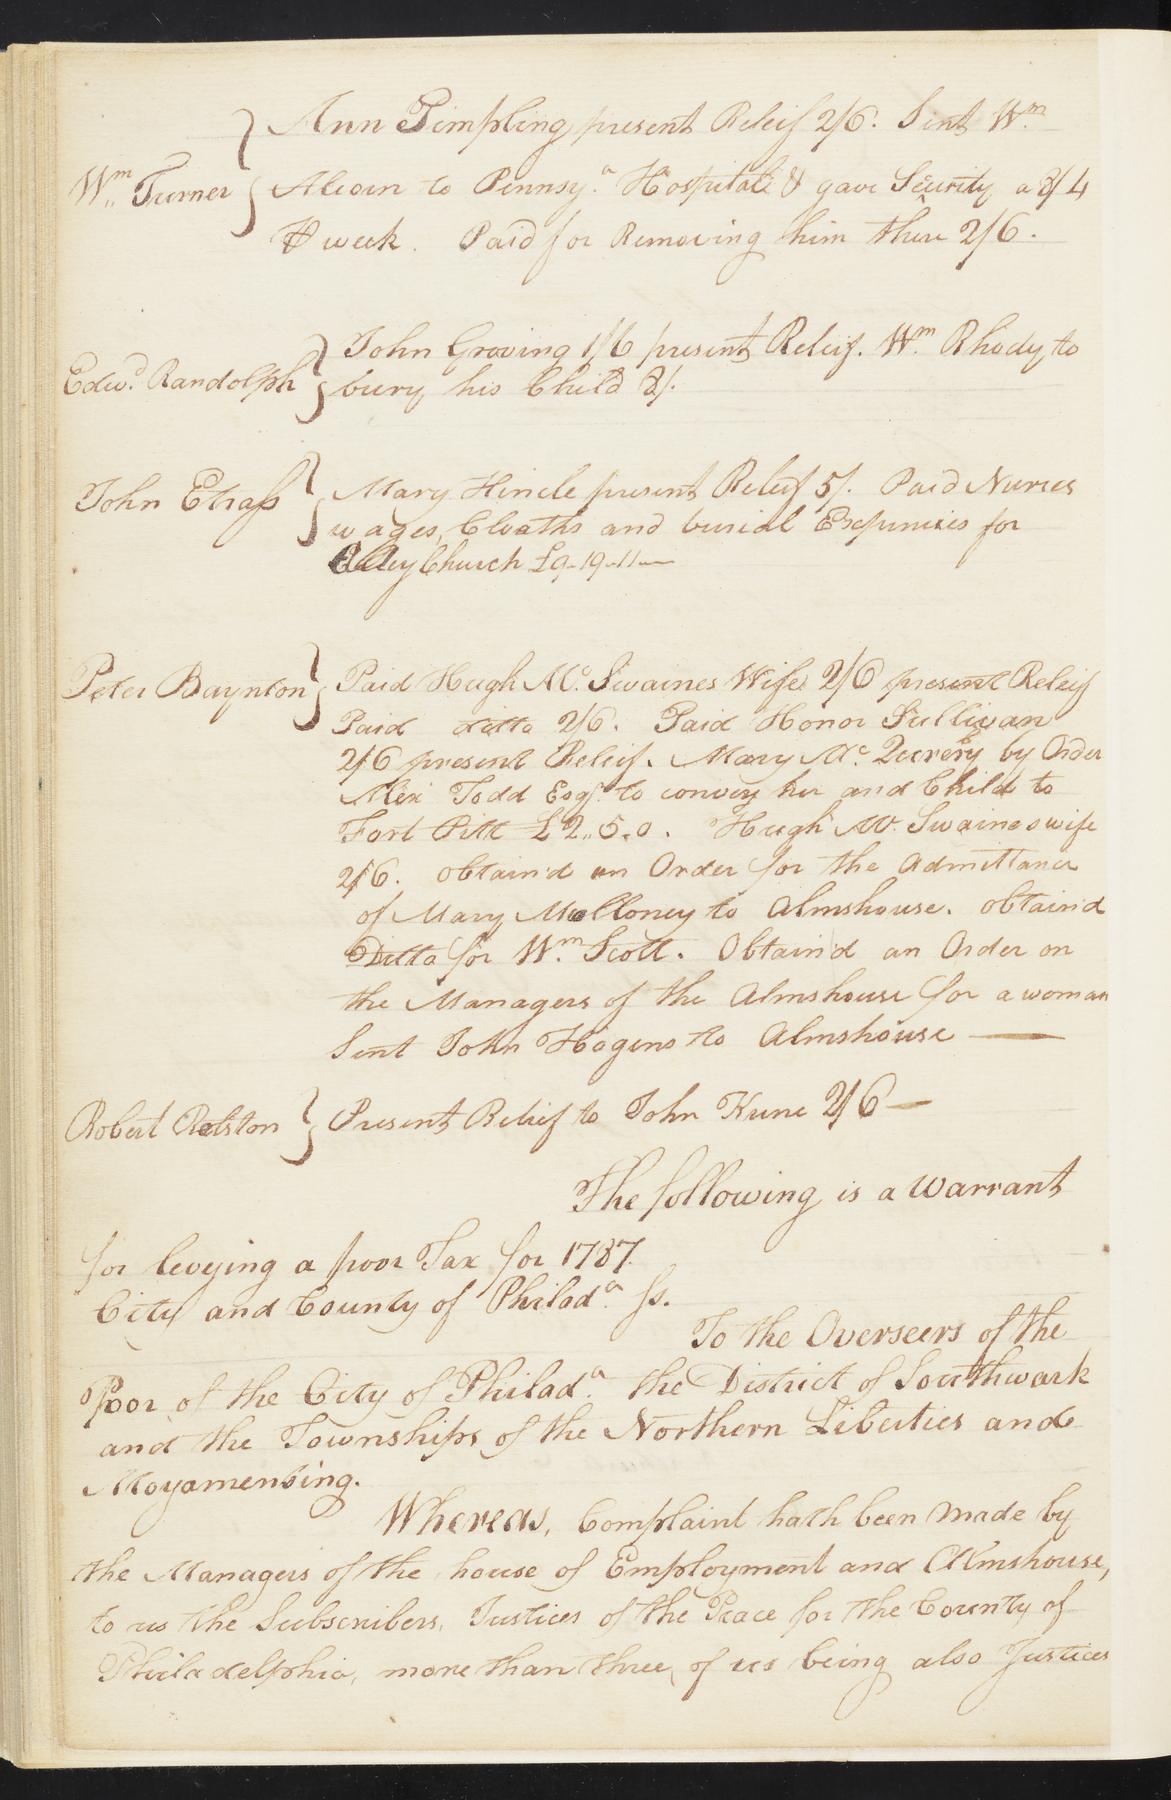 Ann Pimpling present Releif 2/6. Sent Wm.
Wm. Turner } Alcorn to Pennsya. Hospital & gave Security a 3/4
⅌ week. Paid for Removing him there 2/6.
John Groving 1/6 present Releif. Wm. Rhody to
Edwd. Randolph } bury his Child 8/.
John Etrass } Mary Hincle present Releif 5/. Paid Nurses
wages, Cloaths and burial Expences for
Church £9-19-11—
Peter Baynton } Paid Hugh Mc. Swaines Wife 2/6 present Releif
Paid ditto 2/6. Paid Honor Sullivan
2/6 present Releif. Mary Mc. by Order
Alexr Todd Esqr. to convey her and Child to
Fort Pitt £2..5.0. Hugh Mc. Swaines wife
2/6. Obtain'd an Order for the Admittance
of Mary Malloney to Almshouse. Obtain'd
Ditto for Wm. Scott. Obtain'd an Order on
the Managers of the Almshouse for a woman
Sent John Hogens to Almshouse —
Robert Ralston } Present Relief to John Kune 2/6 —
The following is a Warrant
for levying a poor Tax for 1787.
City and County of Philada. ss.
To the Overseers of the
Poor of the City of Philada. the District of Southwark
and the Townships of the Northern Liberties and
Moyamensing.
Whereas, Complaint hath been made by
the Managers of the house of Employment and Almshouse,
to us the Subscribers, Justices of the Peace for the County of
Philadelphia, more than three, of us being also Justices